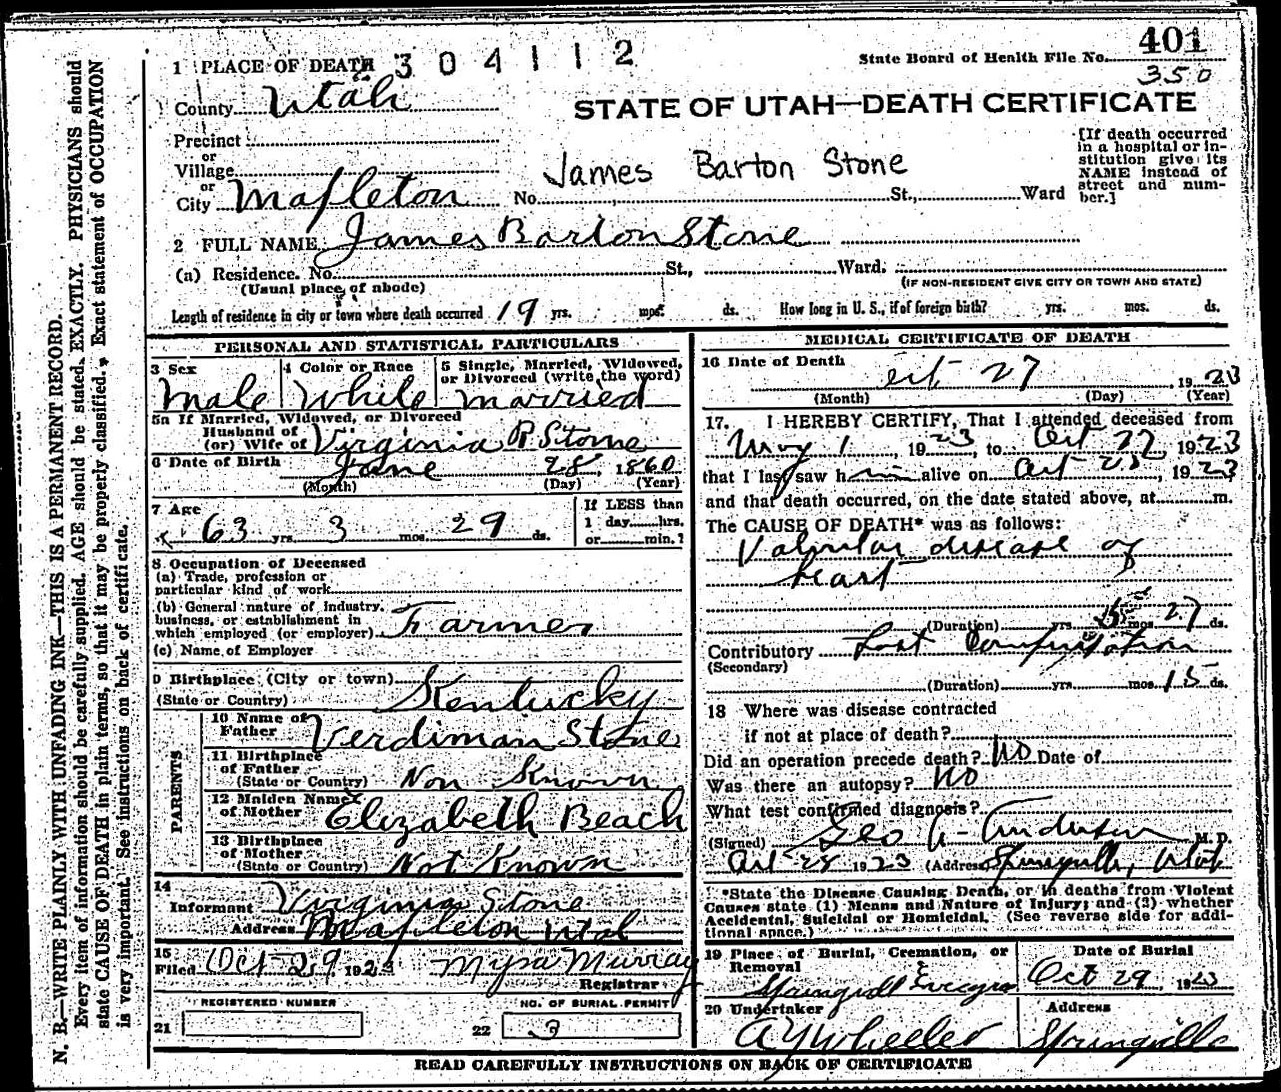 401
State Board of Health File No.
350
1 PLACE OF DEATH 304112
County Utah
STATE OF UTAH—DEATH CERTIFICATE
Precinct
or
Village
or
City Mapleton No. St., Ward
James Barton Stone
[If death occurred
in a hospital or in-
stitution give its
NAME instead of
street and num-
ber.]
2 FULL NAME James Barton Stone
(a) Residence. No. St., Ward.
(Usual place of abode) (IF NON-RESIDENT GIVE CITY OR TOWN AND STATE)
Length of residence in city or town where death occurred 19 yrs. mos. ds. How long in U. S., if of foreign birth? yrs. mos. ds.
PERSONAL AND STATISTICAL PARTICULARS
3 Sex Male
4 Color or Race White
5 Single, Married, Widowed,
or Divorced (write the word)
Married
5a If Married, Widowed, or Divorced
Husband of
(or) Wife of Virginia R Stone
6 Date of Birth June 28 1860
(Month) (Day) (Year)
7 Age
63 yrs. 3 mos. 29 ds.
If LESS than
1 day hrs.
or min.?
8 Occupation of Deceased
(a) Trade, profession or
particular kind of work
(b) General nature of industry,
business, or establishment in
which employed (or employer) Farmer
(c) Name of Employer
9 Birthplace (City or town)
(State or Country) Kentucky
PARENTS
10 Name of
Father Verdiman Stone
11 Birthplace
of Father
(State or Country) Non Known
12 Maiden Name
of Mother Elizabeth Beach
13 Birthplace
of Mother
(State or Country) Not Known
14
Informant Virginia Stone
Address Mapleton Utah
15
Filed Oct 29 1923 Myra Murray
Registrar
REGISTERED NUMBER NO. OF BURIAL PERMIT
21 22 3
MEDICAL CERTIFICATE OF DEATH
16 Date of Death
Oct 27 1923
(Month) (Day) (Year)
17. I HEREBY CERTIFY, That I attended deceased from
May 1, 1923, to Oct 27, 1923
that I last saw him alive on Oct 25, 1923
and that death occurred, on the date stated above, at m.
The CAUSE OF DEATH* was as follows:
Valvular disease of
heart
(Duration) yrs. mos. 27 ds.
Contributory Lost Compensation
(Secondary)
(Duration) yrs. mos. 15 ds.
18 Where was disease contracted
if not at place of death?
Did an operation precede death? No Date of
Was there an autopsy? No
What test confirmed diagnosis?
(Signed) Geo A Anderson M. D.
Oct 28 1923 (Address) Springville, Utah
*State the Disease Causing Death, or in deaths from Violent
Causes state (1) Means and Nature of Injury; and (2) whether
Accidental, Suicidal or Homicidal. (See reverse side for addi-
tional space.)
19 Place of Burial, Cremation, or
Removal
Springville Evergreen
Date of Burial
Oct 29, 1923
20 Undertaker
A Y Wheeler
Address
Springville
READ CAREFULLY INSTRUCTIONS ON BACK OF CERTIFICATE
N. B.—WRITE PLAINLY WITH UNFADING INK—THIS IS A PERMANENT RECORD.
Every item of information should be carefully supplied. AGE should be stated EXACTLY. PHYSICIANS should
state CAUSE OF DEATH in plain terms, so that it may be properly classified. Exact statement of OCCUPATION
is very important. See instructions on back of certificate.